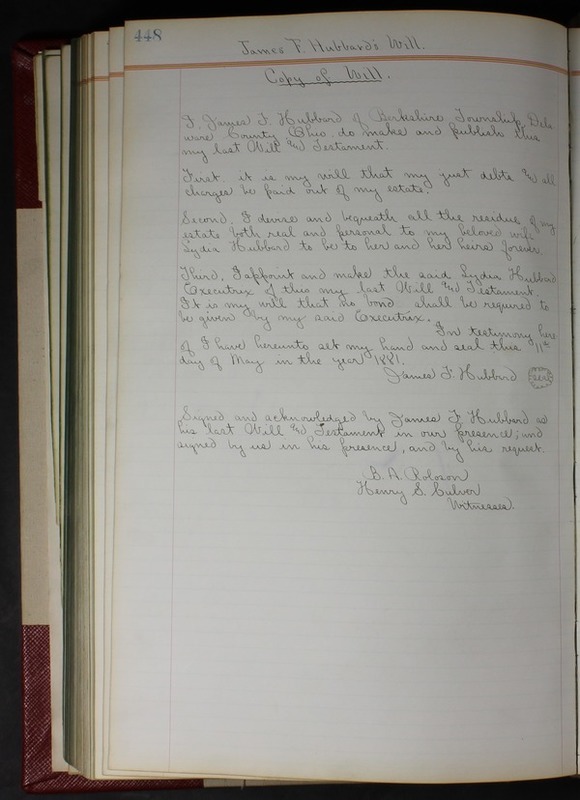 448
James F. Hubbard's Will.
Copy of Will.
I, James F. Hubbard of Berkshire Township Dela
ware County Ohio. do make and publish this
my last Will and Testament.
First. it is my will that my just debts and all
charges be paid out of my estate.
Second. I devise and bequeath all the residue of my
estate both real and personal to my beloved wife
Lydia Hubbard to be to her and her heirs forever.
Third, I appoint and make the said Lydia Hubbard
Executrix of this my last Will and Testament
It is my will that no bond shall be required to
be given by my said Executrix.
In testimony here
of I have hereunto set my hand and seal this 11th
day of May in the year 1881.
James F. Hubbrd seal
Signed and acknowledged by James F. Hubbard as
his last Will and Testament in our presence; and
signed by us in his presence, and by his request.
B. A. Roloson
Henry S. Culver
Witnesses.